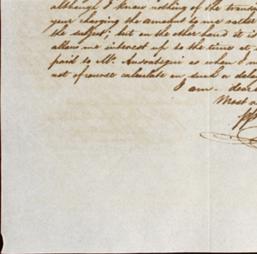 although I know nothing of the transa
your charging the amount to me rather
the subject; but on the other hand it is
allow me interest up to the time at
paid to Mr. as when I
not of course calculate on such a dela
I am. dear
Most o